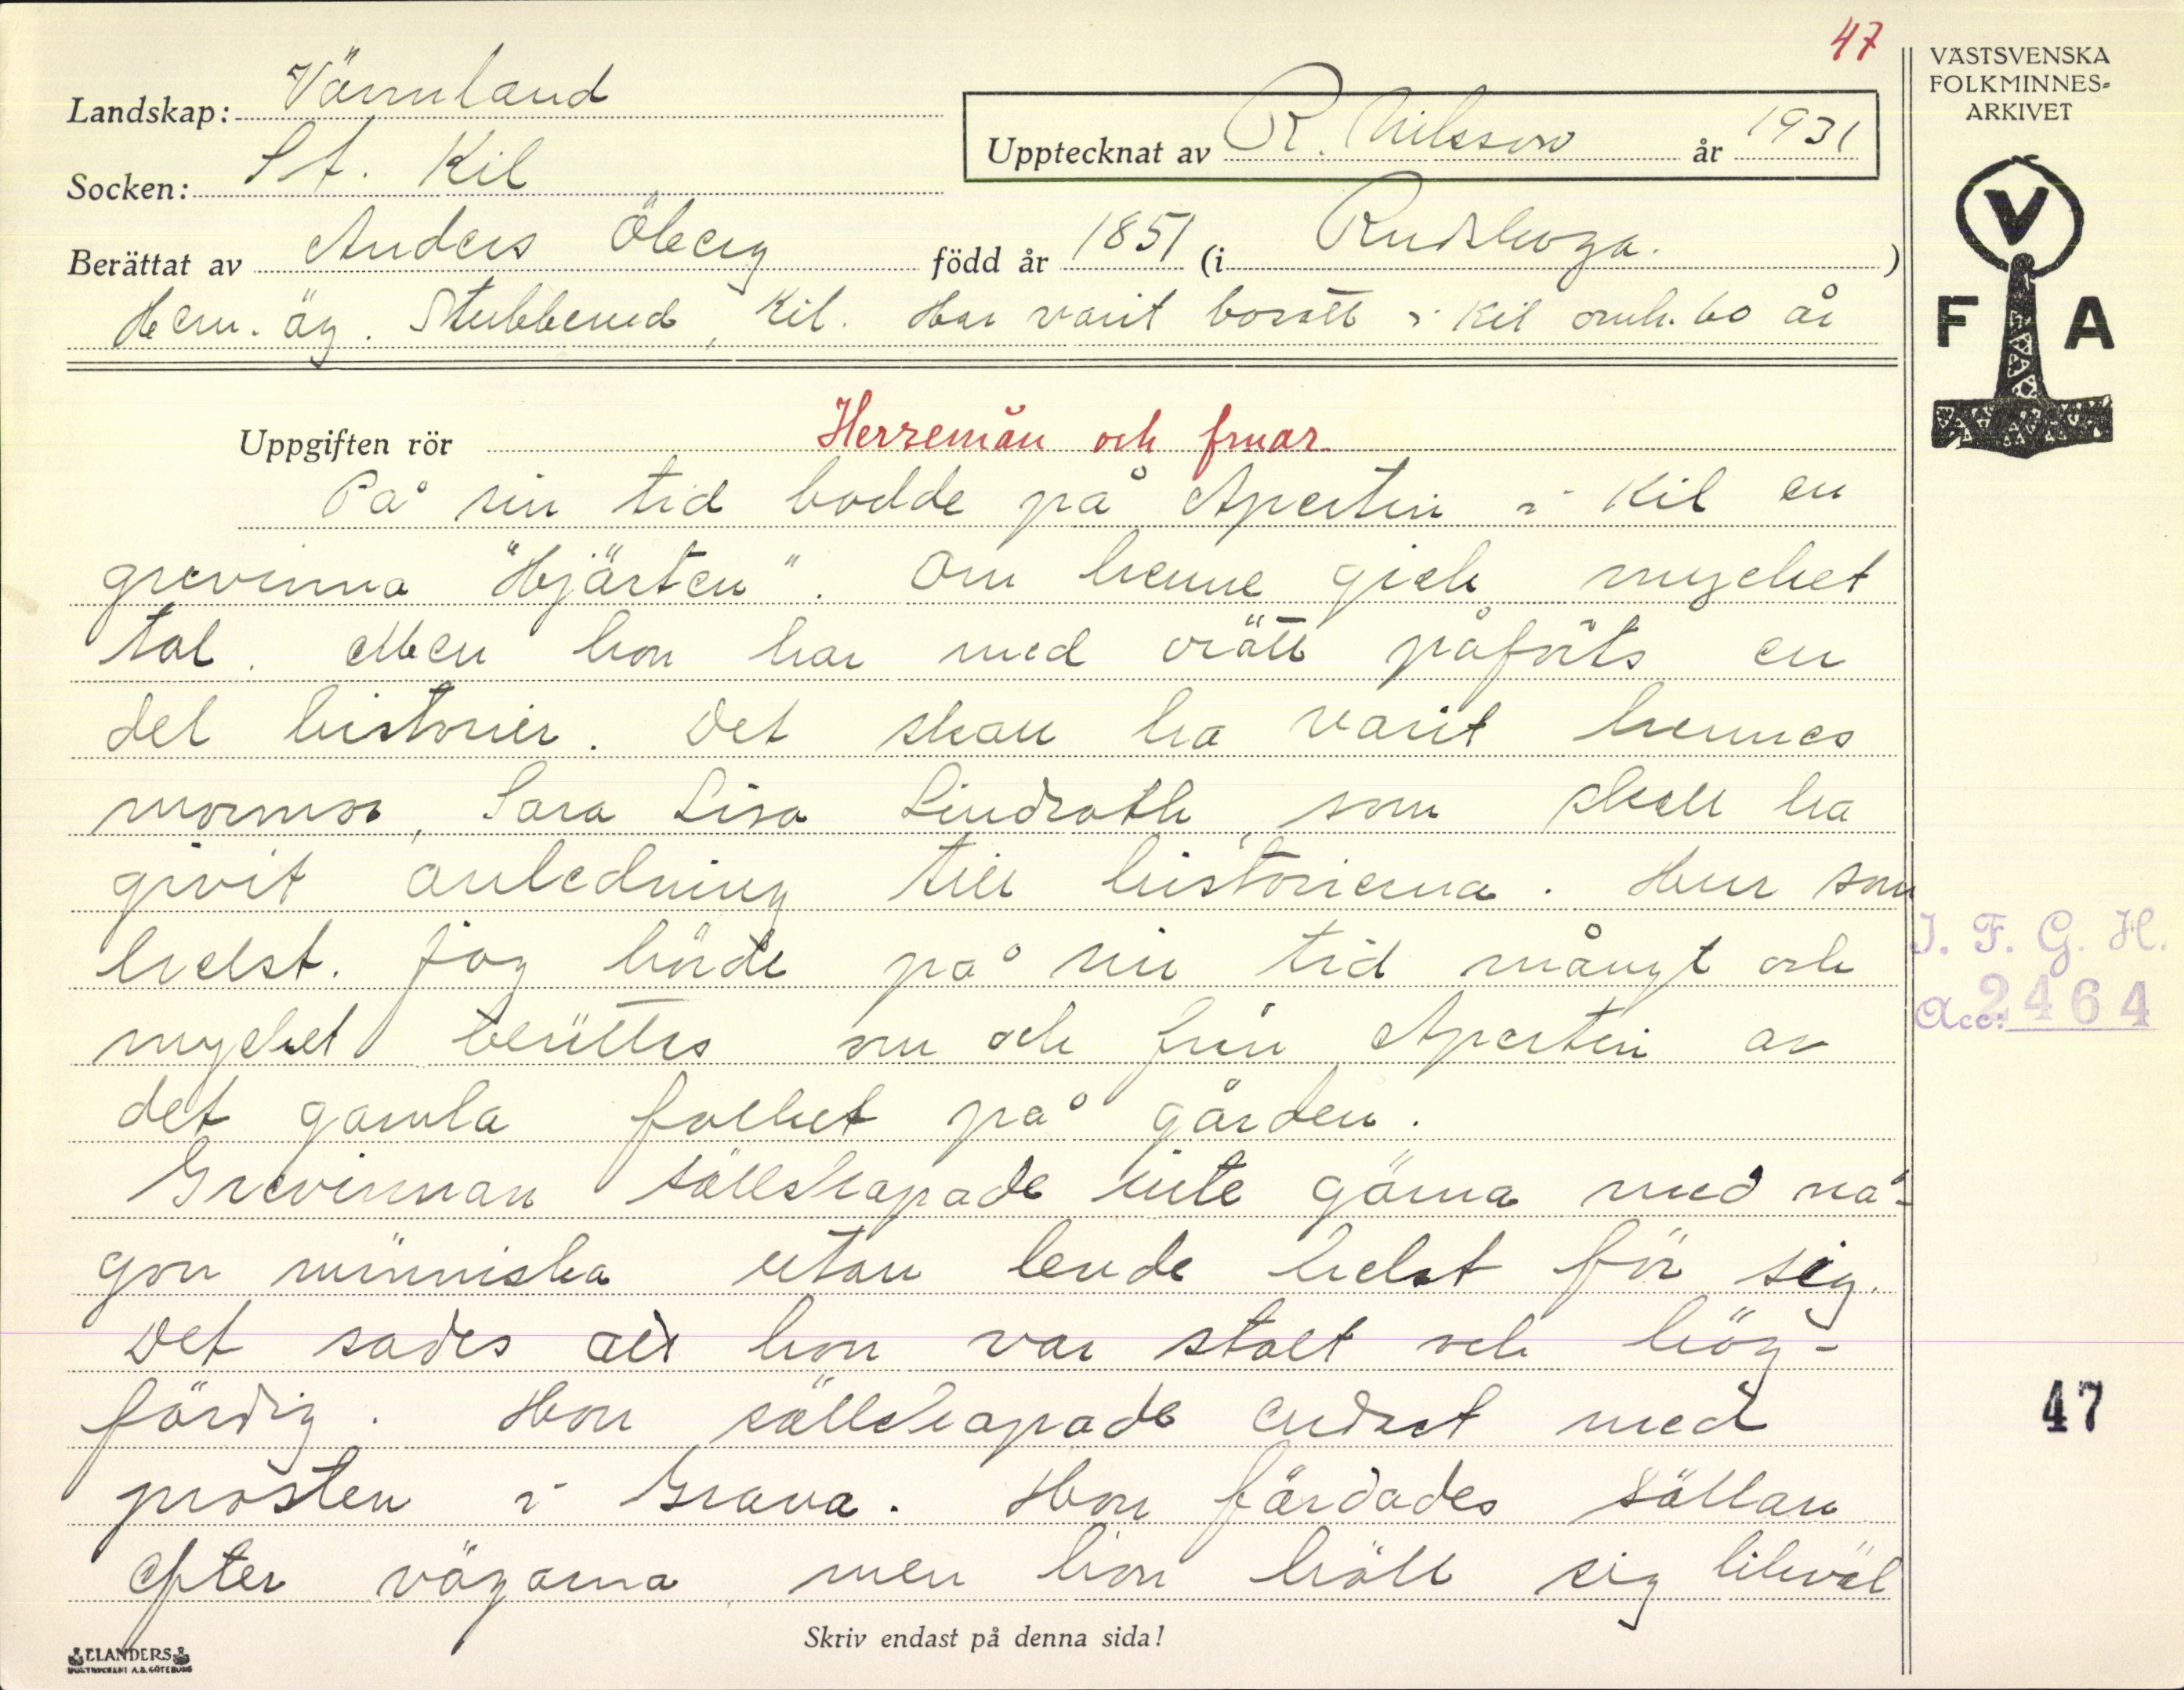 47
VÄSTSVENSKA
FOLKMINNES-
ARKIVET
Landskap: Värmland
Upptecknat av R. Nilsson år 1931
Socken: St. Kil
Berättat av Anders Öberg född år 1851 (i Rudskoga.)
Hem. äg. Stubberud, Kil. Har varit bosatt i Kil omkr. 60 år
V
F A
Uppgiften rör Herremän och fruar.
På sin tid bodde på Apertin i Kil en
grevinna "Hjärten". Om henne gick mycket
tal. Men hon har med orätt påförts en
del historier. Det skall ha varit hennes
mormor, Sara Lisa Lindroth, som skall ha
givit anledning till historierna. Hur som
helst. Jag hörde på sin tid mångt och
mycket berättas om och från Apertin av
det gamla folket på gården.
Grevinnan sällskapade inte gärna med nå-
gon människa utan levde helst för sig.
Det sades att hon var stolt och hög-
färdig. Hon sällskapade endast med
prosten i Grava. Hon färdades sällan
efter vägarna, men hon höll sig likväl
J. F. G. H.
Acc: 2464
47
Skriv endast på denna sida!
ELANDERS
BOKTRYCKERI A.B. GÖTEBORG